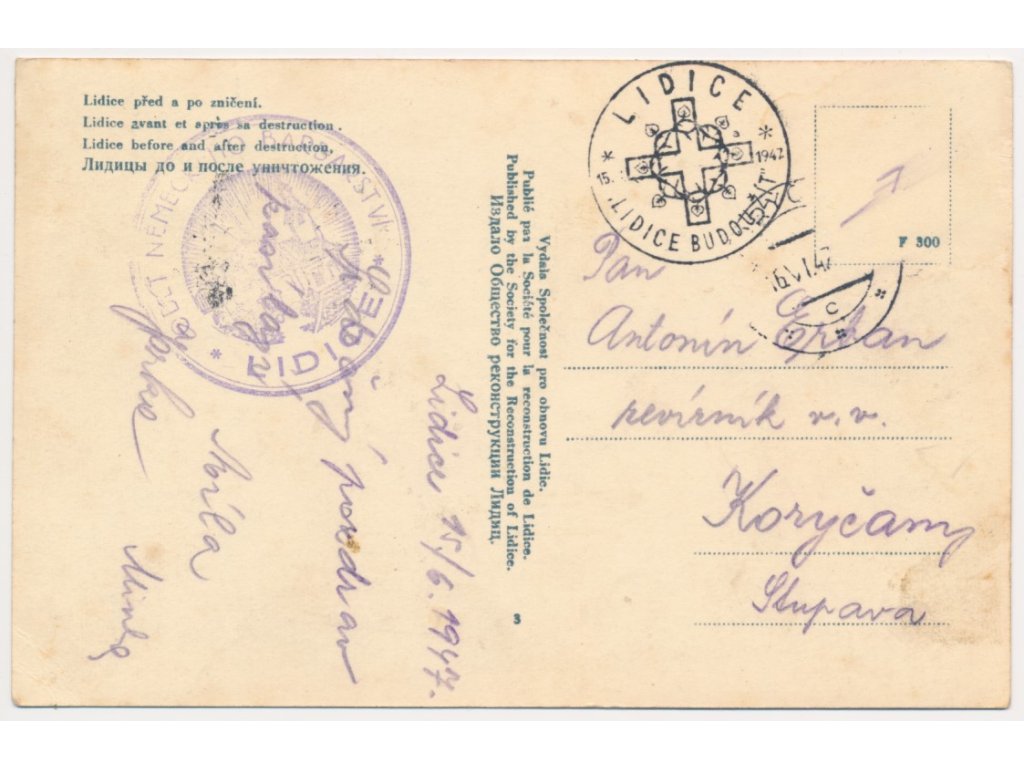 Lidice před a po zničení.
Lidice avant et après sa destruction.
Lidice before and after destruction,
Лидицы до и после уничтожения.
NĚMECKÉHO BARBARSTVÍ
* LIDICE *
Vydala Společnost pro obnovu Lidic.
Publié par la Société pour la reconstruction de Lidice.
Published by the Society for the Reconstruction of Lidice.
Издало Общество реконструкции Лидиц.
3
LIDICE
* 15. 1947 *
"LIDICE BUDOU ŽÍT"
16.VI.47
C
F 300
Pan
Antonín Erban
revírník v. v.
Koryčany
Stupava
Lidice 15/6. 1947.
Srdečný pozdrav
Míla